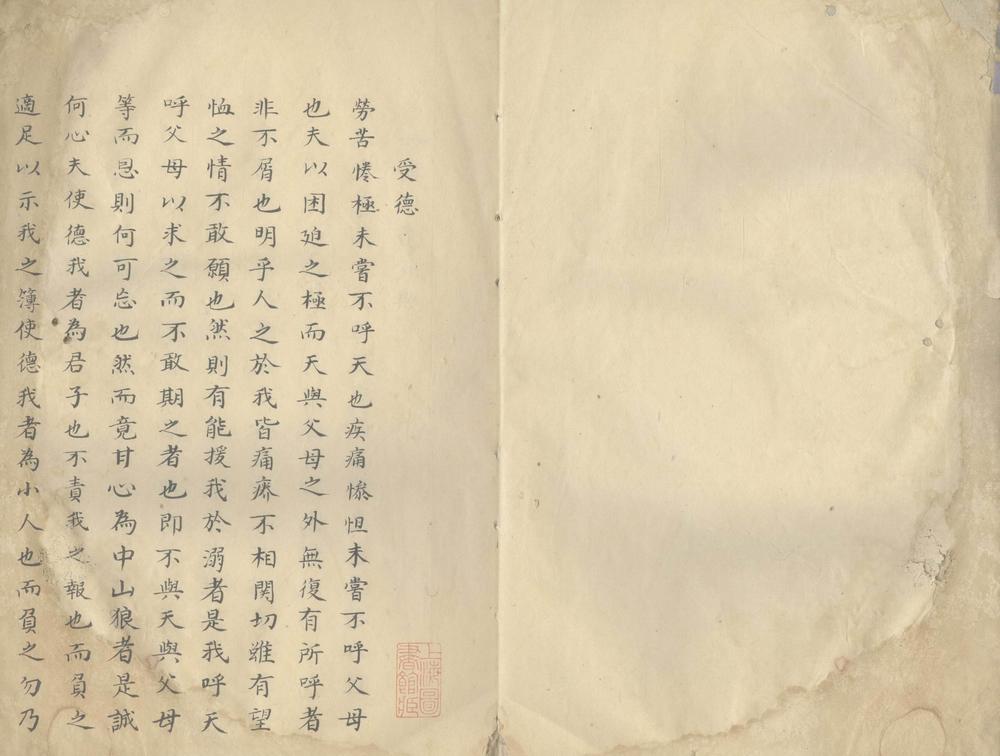 受德
勞苦惓極未嘗不呼天也疾痛慘怛未嘗不呼父母
也夫以困廹之極而天與父母之外無復有所呼者
非不屑也明乎人之於我皆痛瘝不相関切雖有望
恤之情不敢願也然則有能援我於溺者是我呼天
呼父母以求之而不敢期之者也即不與天與父母
等而恩則何可忘也然而竟甘心為中山狼者是誠
何心夫使德我者為君子也不責我之報也而負之
適足以示我之簿使德我者為小人也而負之勿乃
上海圖
書館藏